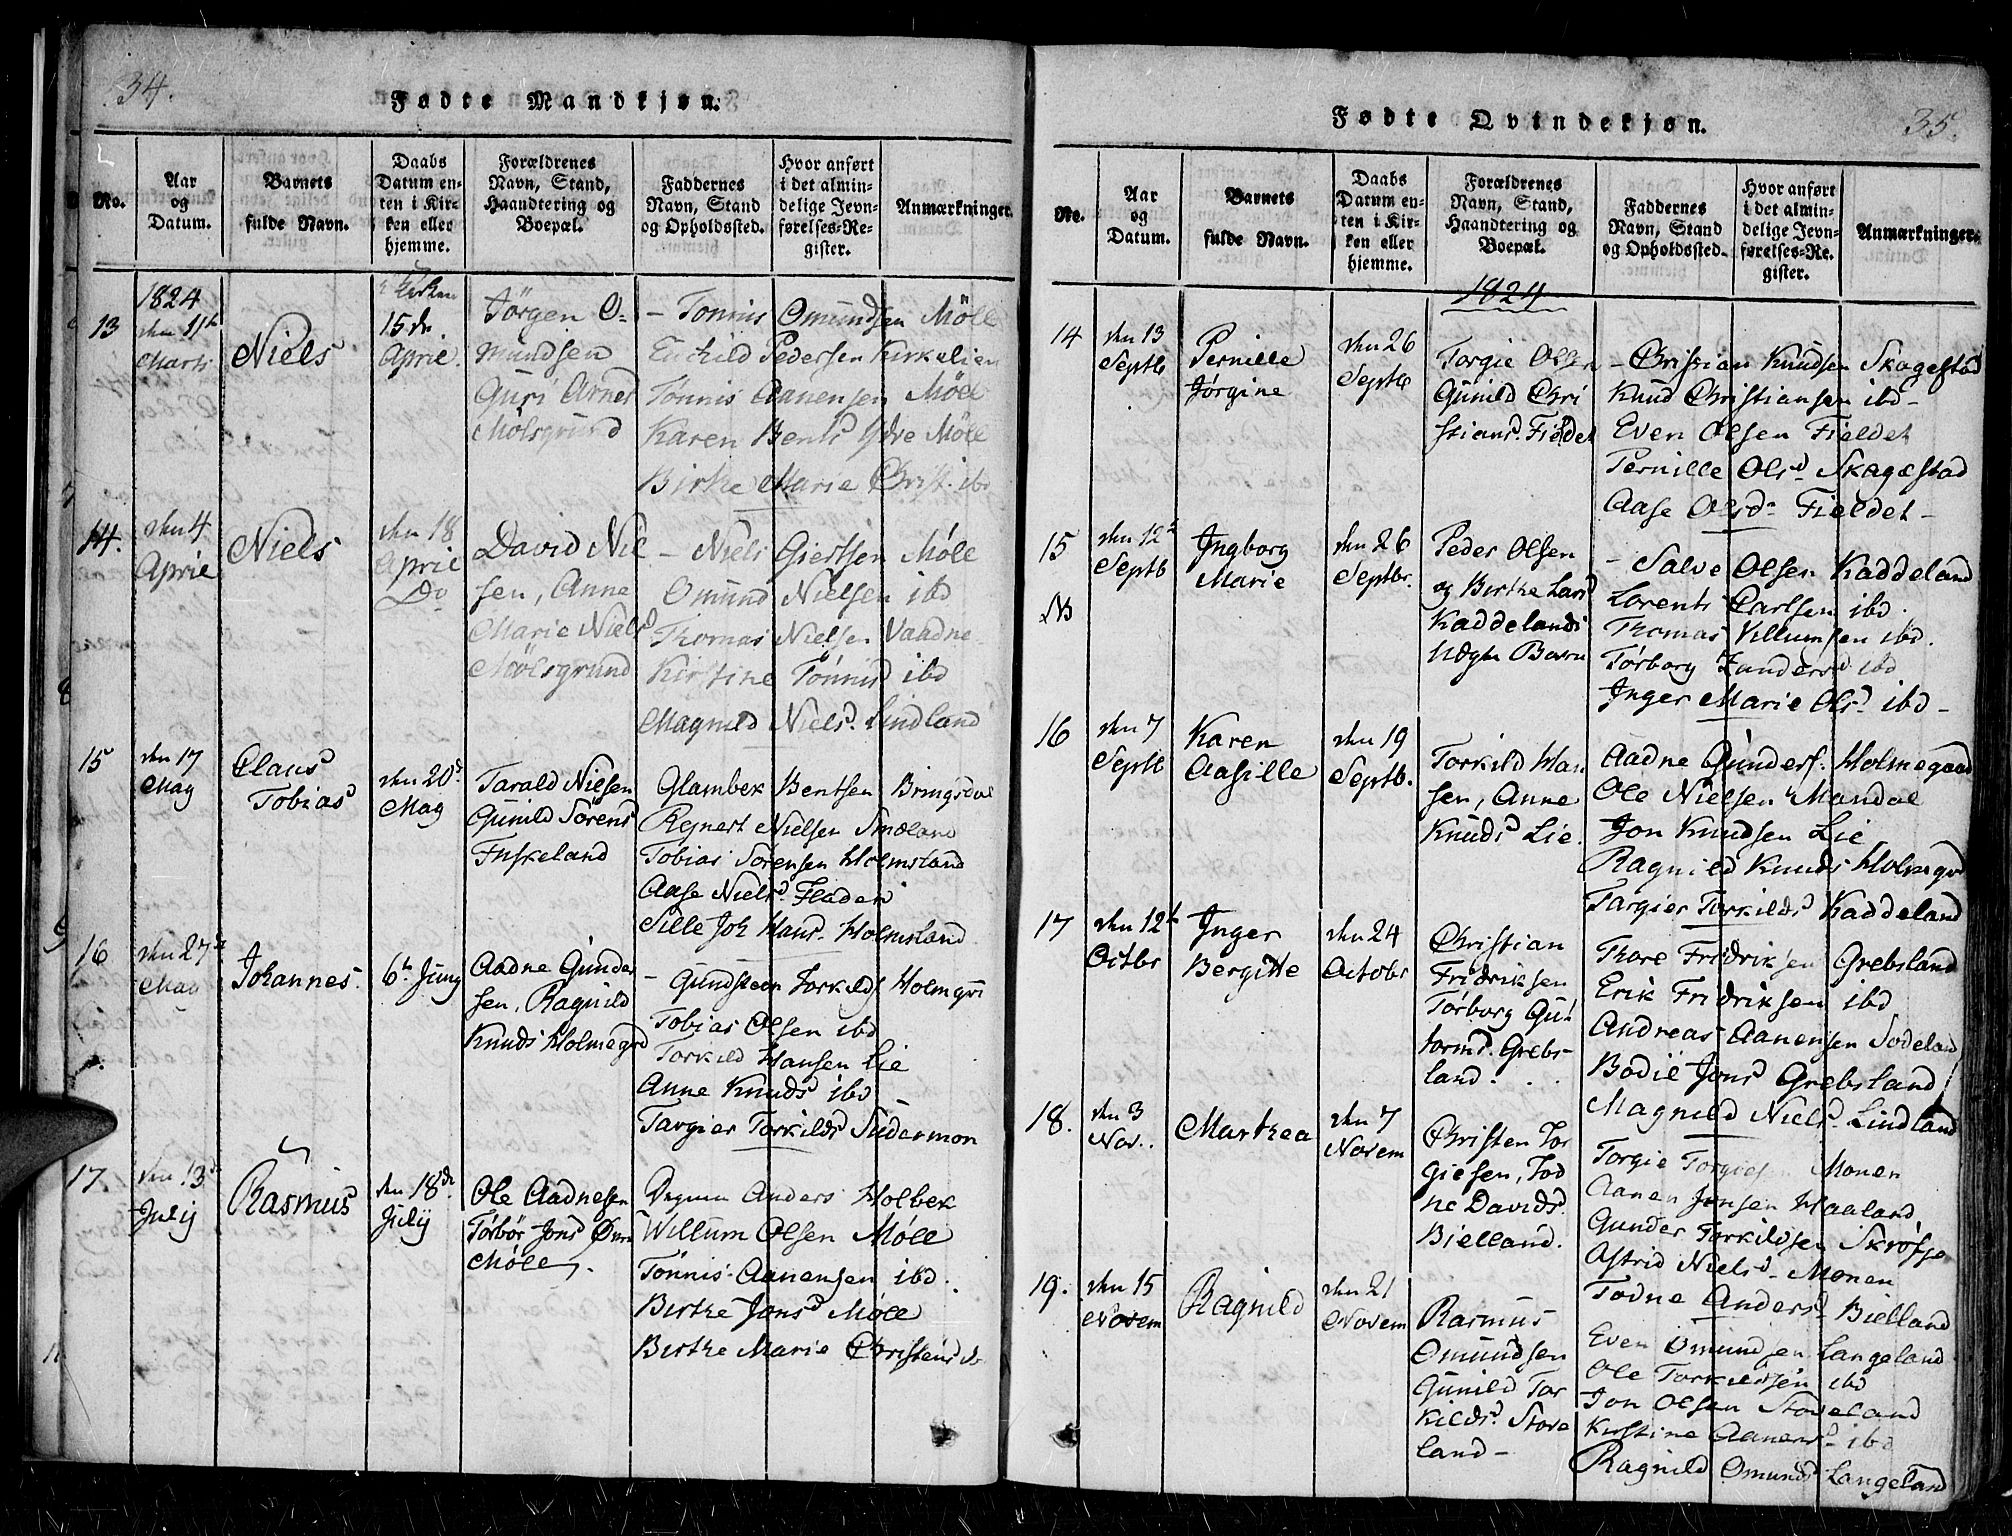 34.
Fødte Mandkjøn.
No.
Aar
og
Datum.
Barnets
fulde Navn.
Daabs
Datum en-
ten i Kir-
ken eller
hjemme.
Forældrenes
Navn, Stand,
Haandtering og
Boepæl.
Faddernes
Navn, Stand
og Opholdssted.
Hvor anført
i det almin-
delige Jevn-
førelses-Re-
gister.
Anmærkninger.
1824
13
den 11te
Marts
Niels
i Kirken
15de
April.
Jörgen O-
mundsen
Guri Arnes
Molsgrund
- Tonnis Omundsen Möll
Pedersen Kirkelien
Tönnis Aanensen Möll
Karen Bentsd Ydre Möll
Birthe Marie Christ. ibd
14.
den 4
April
Niels
den 18
April
Do
David Niel
sen, Anne
Marie Nielsd
Mölsgrund
- Niels Giertsen Møll
Omund Nielsen ibd
Thomas Nielsen Vaadne
Kirstine Tönnisd ibd
Magnild Nielsd. Lindland
15
den 17
May
Claus
Tobias
den 20d
May
Tarald Nielsen
Gunild Sörens
Fuskeland
Glambek Bentsen Bringsdal
Reinert Nielsen Smeland
Tobias Sörensen Holmsland
Aase Nielsd. Fladen
Sille Joh Hansd. Holmsland
16
den 27de
May
Johannes.
6te Juny
Aadne Gunder
sen, Ragnild
Knuds Holmegrd
- Gundsteen Torkilds Holmgrd
Tobias Olsen ibd
Torkild Hansen Lie
Anne Knudsd ibd
Targier Torkildsd Sudermon
17
den 13d
July
Rasmus
den 18de
July
Ole Aadnesen
Törbör Jonsd Övre
Möll.
Anders Holbek
Willum Olsen Möll
Tönnis Aanensen ibd.
Birthe Jonsd Möll
Birthe Marie Christensd do
35.
Fødte Qvindekjøn.
No.
Aar
og
Datum.
Barnets
fulde Navn.
Daabs
Datum en-
ten i Kir-
ken eller
hjemme.
Forældrenes
Navn, Stand,
Haandtering og
Boepæl.
Faddernes
Navn, Stand
og Opholdssted.
Hvor anført
i det almin-
delige Jevn-
førelses-Re-
gister.
Anmærkninger.
1824
14
den 13
Septb
Pernille
Jörgine
den 26
Septb
Torgie Olsen
Gunild Chri
stiansd. Fieldet
- Christian Knudsen Skagestad
Knud Christiansen ibd -
Even Olsen Fieldet
Pernille Olsd Skagestad
Aase Olsd. Fieldet -
15
NB
den 12te
Septb
Ingborg
Marie
den 26
Septbr.
Peder Olsen
og Birthe Larsd
Kaddelands
Uægte Barn
- Salve Olsen Kaddeland
Lorents Carlsen ibd.
Thomas Villumsen ibd.
Törborg Zandersd ibd
Inger Marie Olsd ibd -
16
den 7
Septb
Karen
Aasille
den 19
Septb.
Torkild Han
sen, Anne
Knudsd Lie.
Aadne Gunders. Holmegaard
Ole Nielsen Mandal
Jon Knudsen Lie
Ragnild Knuds Holmegrd
Targier Torkildsd Kaddeland
17
den 12te
Octbr
Inger
Bergitte
den 24
Octobr
Christian
Fridriksen
Törborg Gu-
tormsd. Grebs-
land.
Thore Fridriksen Grebsland
Erik Fridriksen ibd
Andreas Aanensen Sodeland
Bodil Jonsd Grebsland
Magnild Nielsd. Lindland
18.
den 3
Nov..
Marthea
den 7
Novem
Christen Tor
giesen, Tod
ne Davidsd.
Bielland.
Torgie Torgiesen Monen
Aanen Jonsen Haaland
Gunder Torkildsen Skröfse
Astrid Nielsd. Monen
Todne Andersd. Bielland
19.
den 15
Novem
Ragnild
den 21
Novem
Rasmus
Omundsen
Gunild Tor
kildsd. Stove
land -
Even Omundsen Langeland
Ole Torkildsen ibd
Jon Olsen Stoveland
Kirstine Aanensd - ibd
Ragnild Omundsd Langeland